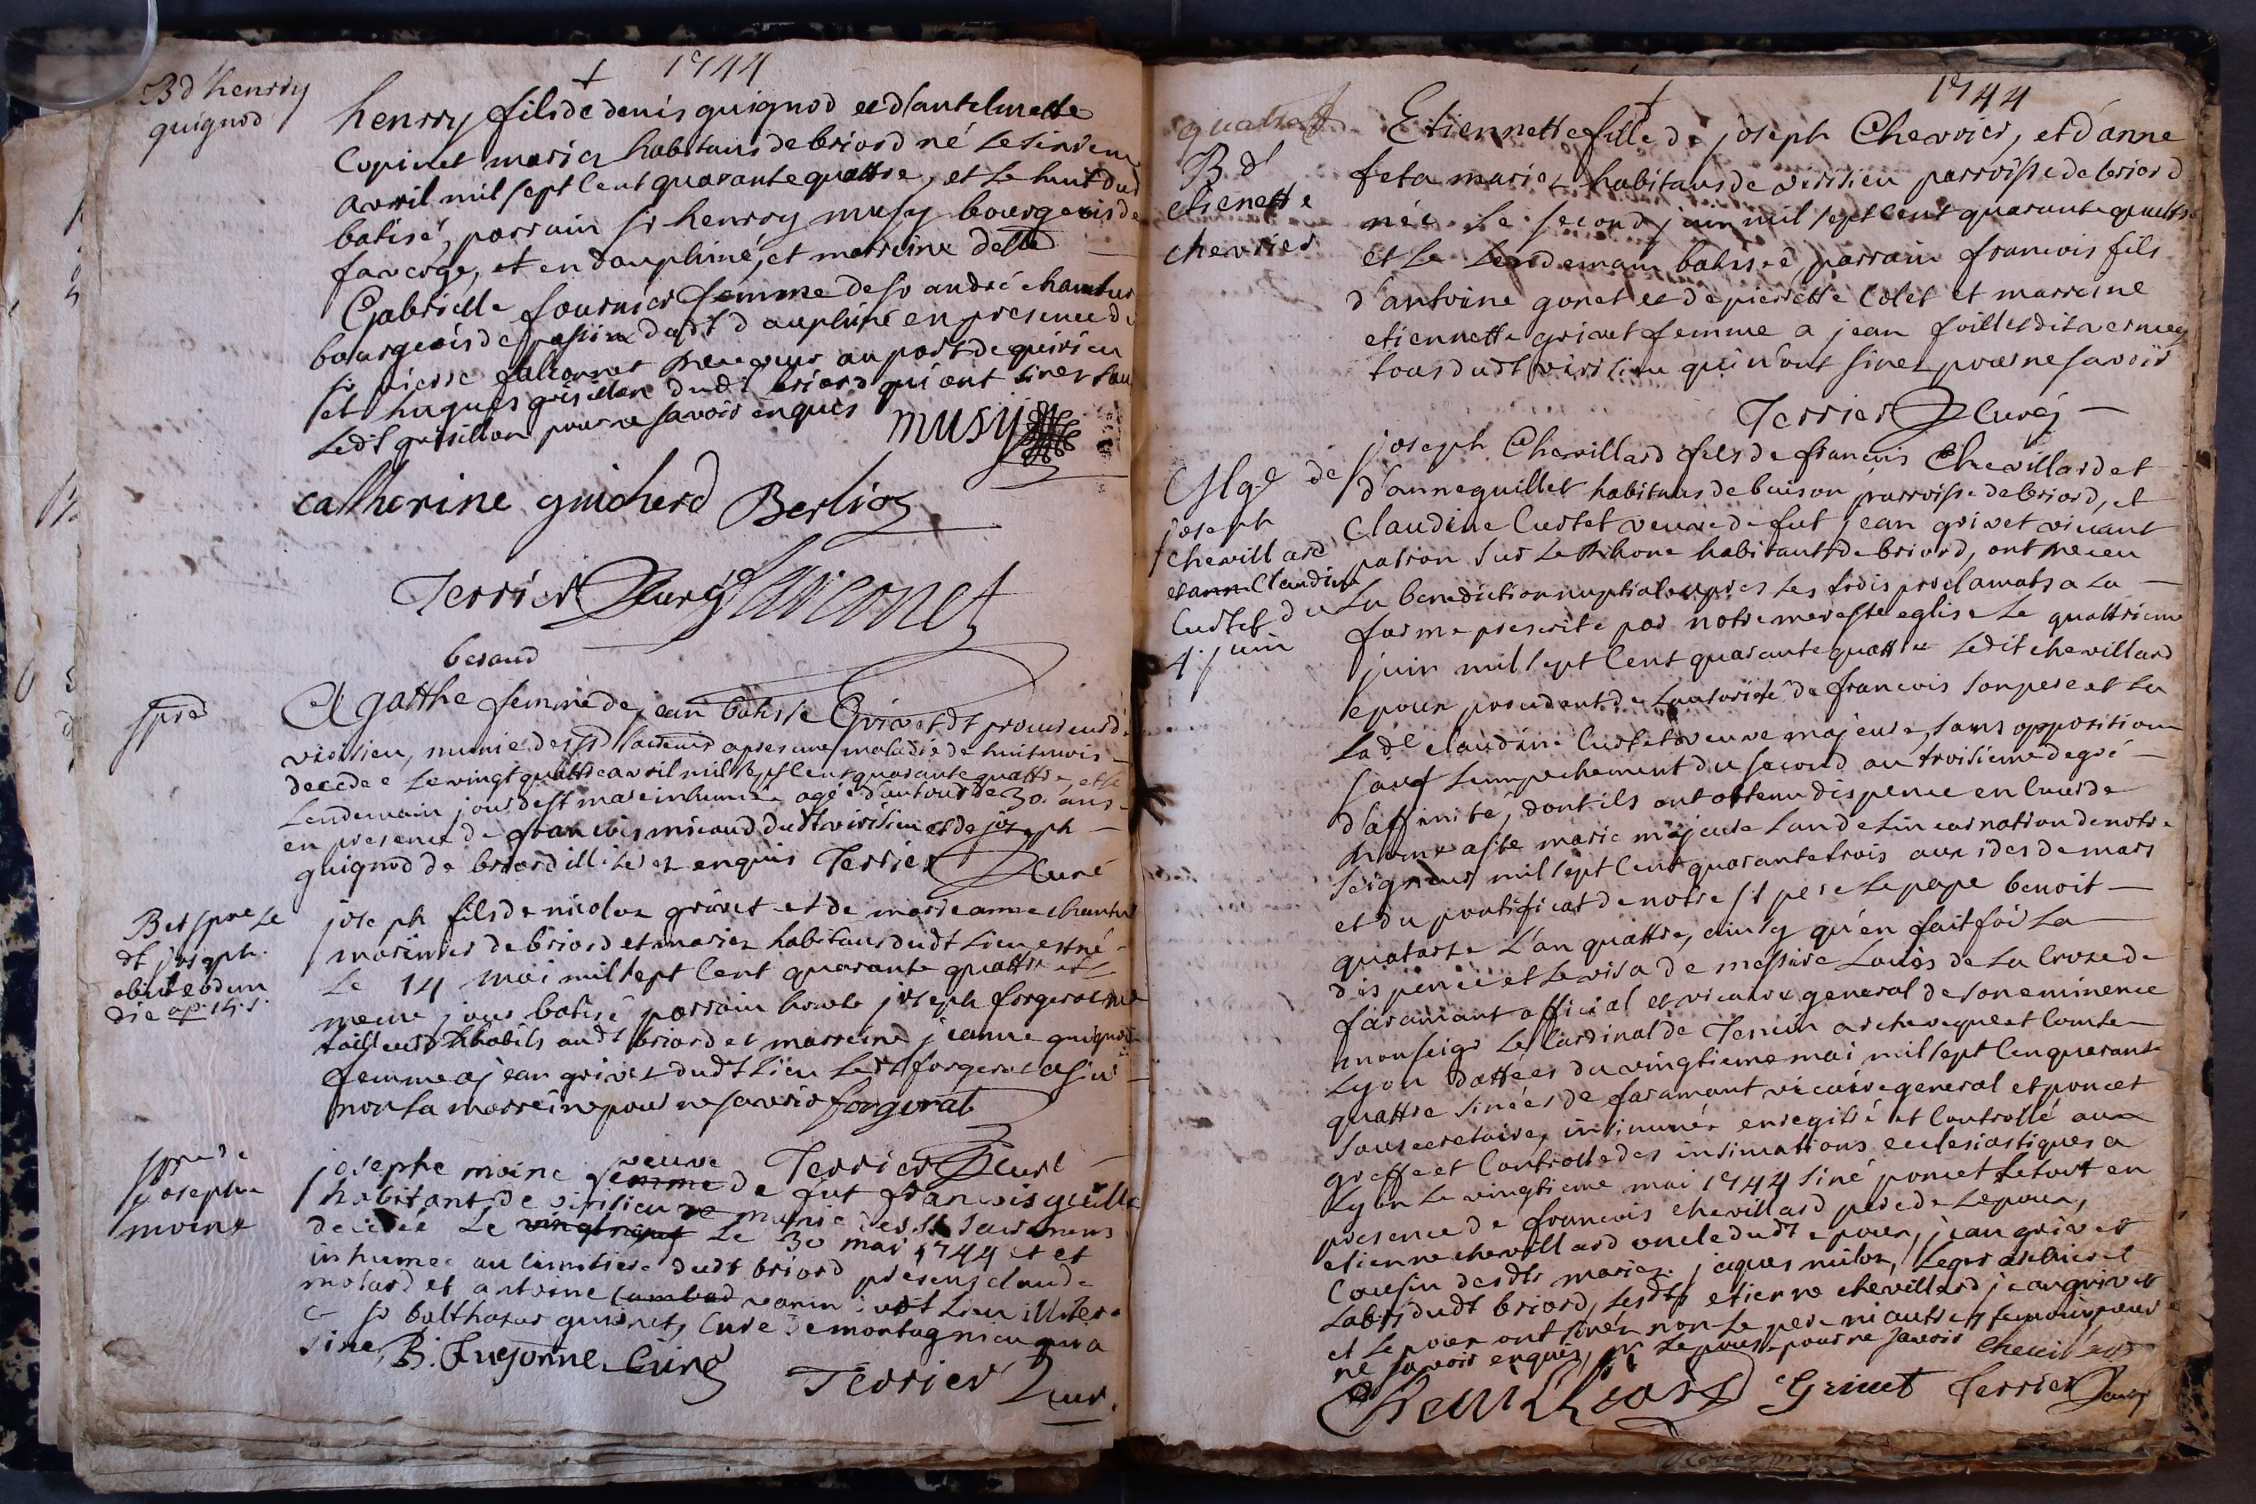 1744
Bd henrry
quignod
henrry fils de denis quignod et d'antelmette
Copinet mariez habitans de briord né le
avril mil sept cent quarante quattre, et le huit dud
batisé, parrain sr henrry musy bourgeois de
faverge, et en dauphiné, et marreine delle
Gabrielle fournier femme de sr andré
bourgeois de dudt dauphiné en presence de
sr pierre falconnet receveur au port de quirieu
et hugues grisillon dudt briord qui ont sinez sauf
ledt grisillon pour ne savoir enquis musy
catherine guicherd Berlioz
Terrier Curé falconet
beraud
spre
Agatthe femme de jean batiste Grivet dt procureur de
virisieu, munie des sts sacremens apres une maladie de huit mois
decedee le vingt quattre avril mil sept cent quarante quattre, et le
lendemain jour de st marc inhumée agée d'autour de 30 ans
en presence de francois micoud dudt virisieu et de joseph
quignod de briord illiterez enquis Terrier Curé
Bet spre le
dt joseph
obiit eodem
die
joseph fils de nicolas grivet et de marie anne
marinier de briord et mariez habitans dudt lieu est né
le 14 mai mil sept cent quarante quattre et le
meme jour batisé parrain joseph forgerat me
tailleur d'habits audt briord et marreine jeanne quignod
femme a jean grivet dudt lieu ledt forgerat a siné
non la marreine pour ne savoir forgerat
Terrier Curé
spre de
josephe
moine
josephe moine femme veuve de fut francois
habitant de virisieu munie des sts sacremens
decedée le vingt neuf le 30 mai 1744 et
inhumee au cimitiere dudt briord presens claude
molard et antoine lambert varin dudt lieu illiterez
et sr balthazar guionet, curé de montagnieu qui a
sine, B. Curé
Terrier Cur.
1744
Bd
etienette
chevrier
Etiennette fille de joseph Chevrier, et d'anne
feta mariez habitans de virisieu parroisse de briord
née le second juin mil sept cent quarante quattre
et le lendemain batisée, parrain francois fils
d'antoine gonet et de pierrette Colet et marreine
etiennette grivet femme a jean foillet dit vernay
tous dudt virisieu qui n'ont sinez pour ne savoir
Terrier Curé
de
joseph
chevillard
et anne Claudine
Curtet du
4 juin
joseph Chevillard fils de francois Chevillard et
d'anne quillet habitans de buison parroisse de briord, et
Claudine Curtet veuve de fut jean grivet vivant
patron sur le Rhone habitants de briord, ont receu
la benediction nuptiale apres les trois proclamats a la
forme prescrite par notre mere ste eglise le quattrieme
juin mil sept cent quarante quattre ledit chevillard
epoux procedant de l'autorité de francois son pere et la
lade claudine Curtet veuve majeure, sans opposition
sauf l'empechement du second au troisieme degré
d'affinité, dont ils ont obtenu dispence en cour de
Rome a ste marie majeure l'an de l'incarnation de notre
seigneur mil sept cent quarante trois aux ides de mars
et du pontificat de notre st pere le pape benoit
quatorze l'an quattre, ainsy qu'en fait foi la
dispence et le visa de messire Louis de la Croze de
faramant official et vicaire general de son eminence
monseigr le Cardinal de Tencin archeveque et Comte
Lyon dattées du vingtieme mai mil sept cent quarante
quattre sinées de faramant vicaire general et poncet
sousecretaire, insinuée enregitré et Controllé aux
greffe et Controlle des insinuations ecclesiastiques a
Lyon le vingtieme mai 1744 siné poncet le tout en
presence de francois chevillard pere de l'epoux,
etienne chevillard oncle dudt epoux, jean grivet
Cousin desdts mariez, jaques milon,
Labts dudt briord, lesdts etienne chevillard jean grivet
et l'epoux ont sinez non le pere ni autres temoins pour
ne savoir enquis, ni l'epouse pour ne savoir chevillard
Chevillard Grivet Terrier Curé